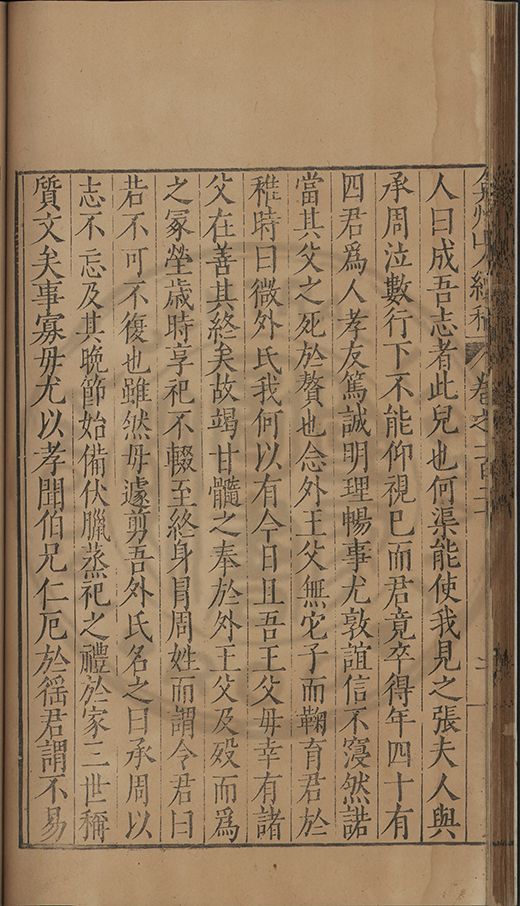 人續稿 卷之一百二十
人曰成吾志者此兒也何渠能使我見之張夫人與
承周泣數行下不能仰視已而君竟卒得年四十有
四君爲人孝友篤誠明理暢事尤敦誼信不寖然諾
當其父之死於贅也念外王父無它子而鞠育君於
稚時曰微外氏我何以有今日且吾王父毋幸有諸
父在善其終矣故竭甘髓之奉於外王父及歿而爲
之冡塋歲時享祀不輟至終身冐周姓而謂令君曰
若不可不復也雖然毋遽剪吾外氏名之曰承周以
志不忘及其晩節始備伏臘蒸祀之禮於家三世稱
質文矣事寡毋尤以孝聞伯兄仁厄於徭君謂不易